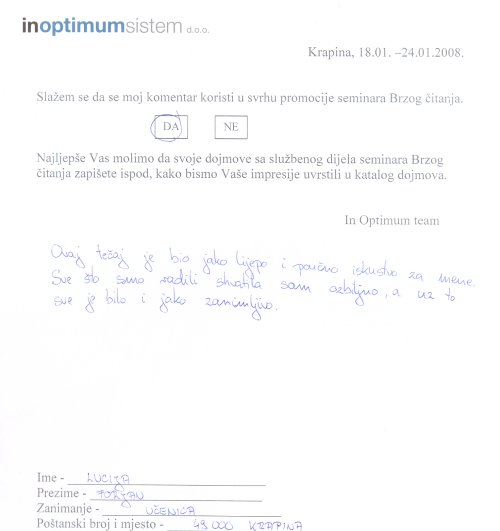 inoptimumsistem d.o.o.
Krapina, 18.01. –24.01.2008.
Slažem se da se moj komentar koristi u svrhu promocije seminara Brzog čitanja.
DA NE
Najljepše Vas molimo da svoje dojmove sa službenog dijela seminara Brzog
čitanja zapišete ispod, kako bismo Vaše impresije uvrstili u katalog dojmova.
In Optimum team
Ovaj tečaj je bio jako lijepo i poučno iskustvo za mene.
Sve što smo radili shvatila sam ozbiljno, a uz to
sve je bilo i jako zanimljivo.
Ime - LUCIJA
Prezime -
Zanimanje - UČENICA
Poštanski broj i mjesto - 49 000 KRAPINA